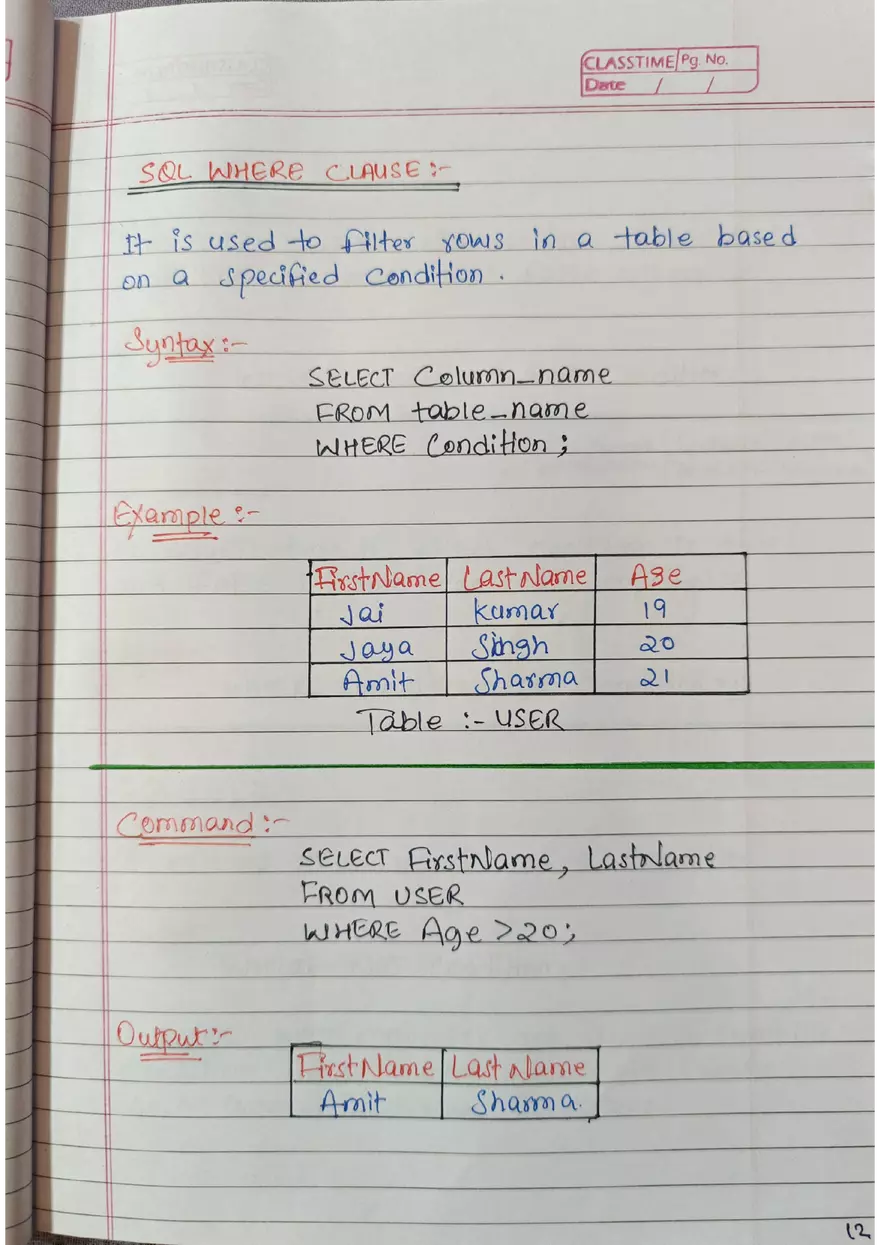 CLASSTIME Pg. No.
Date / /
SQL WHERE CLAUSE :-
It is used to filter rows in a table based
on a specified condition .
Syntax :-
SELECT Column_name
FROM table_name
WHERE Condition ;
Example :-
FirstName LastName Age
Jai Kumar 19
Jaya Singh 20
Amit Sharma 21
Table :- USER
Command :-
SELECT FirstName, LastName
FROM USER
WHERE Age >20;
Output :-
FirstName Last Name
Amit Sharma.
12